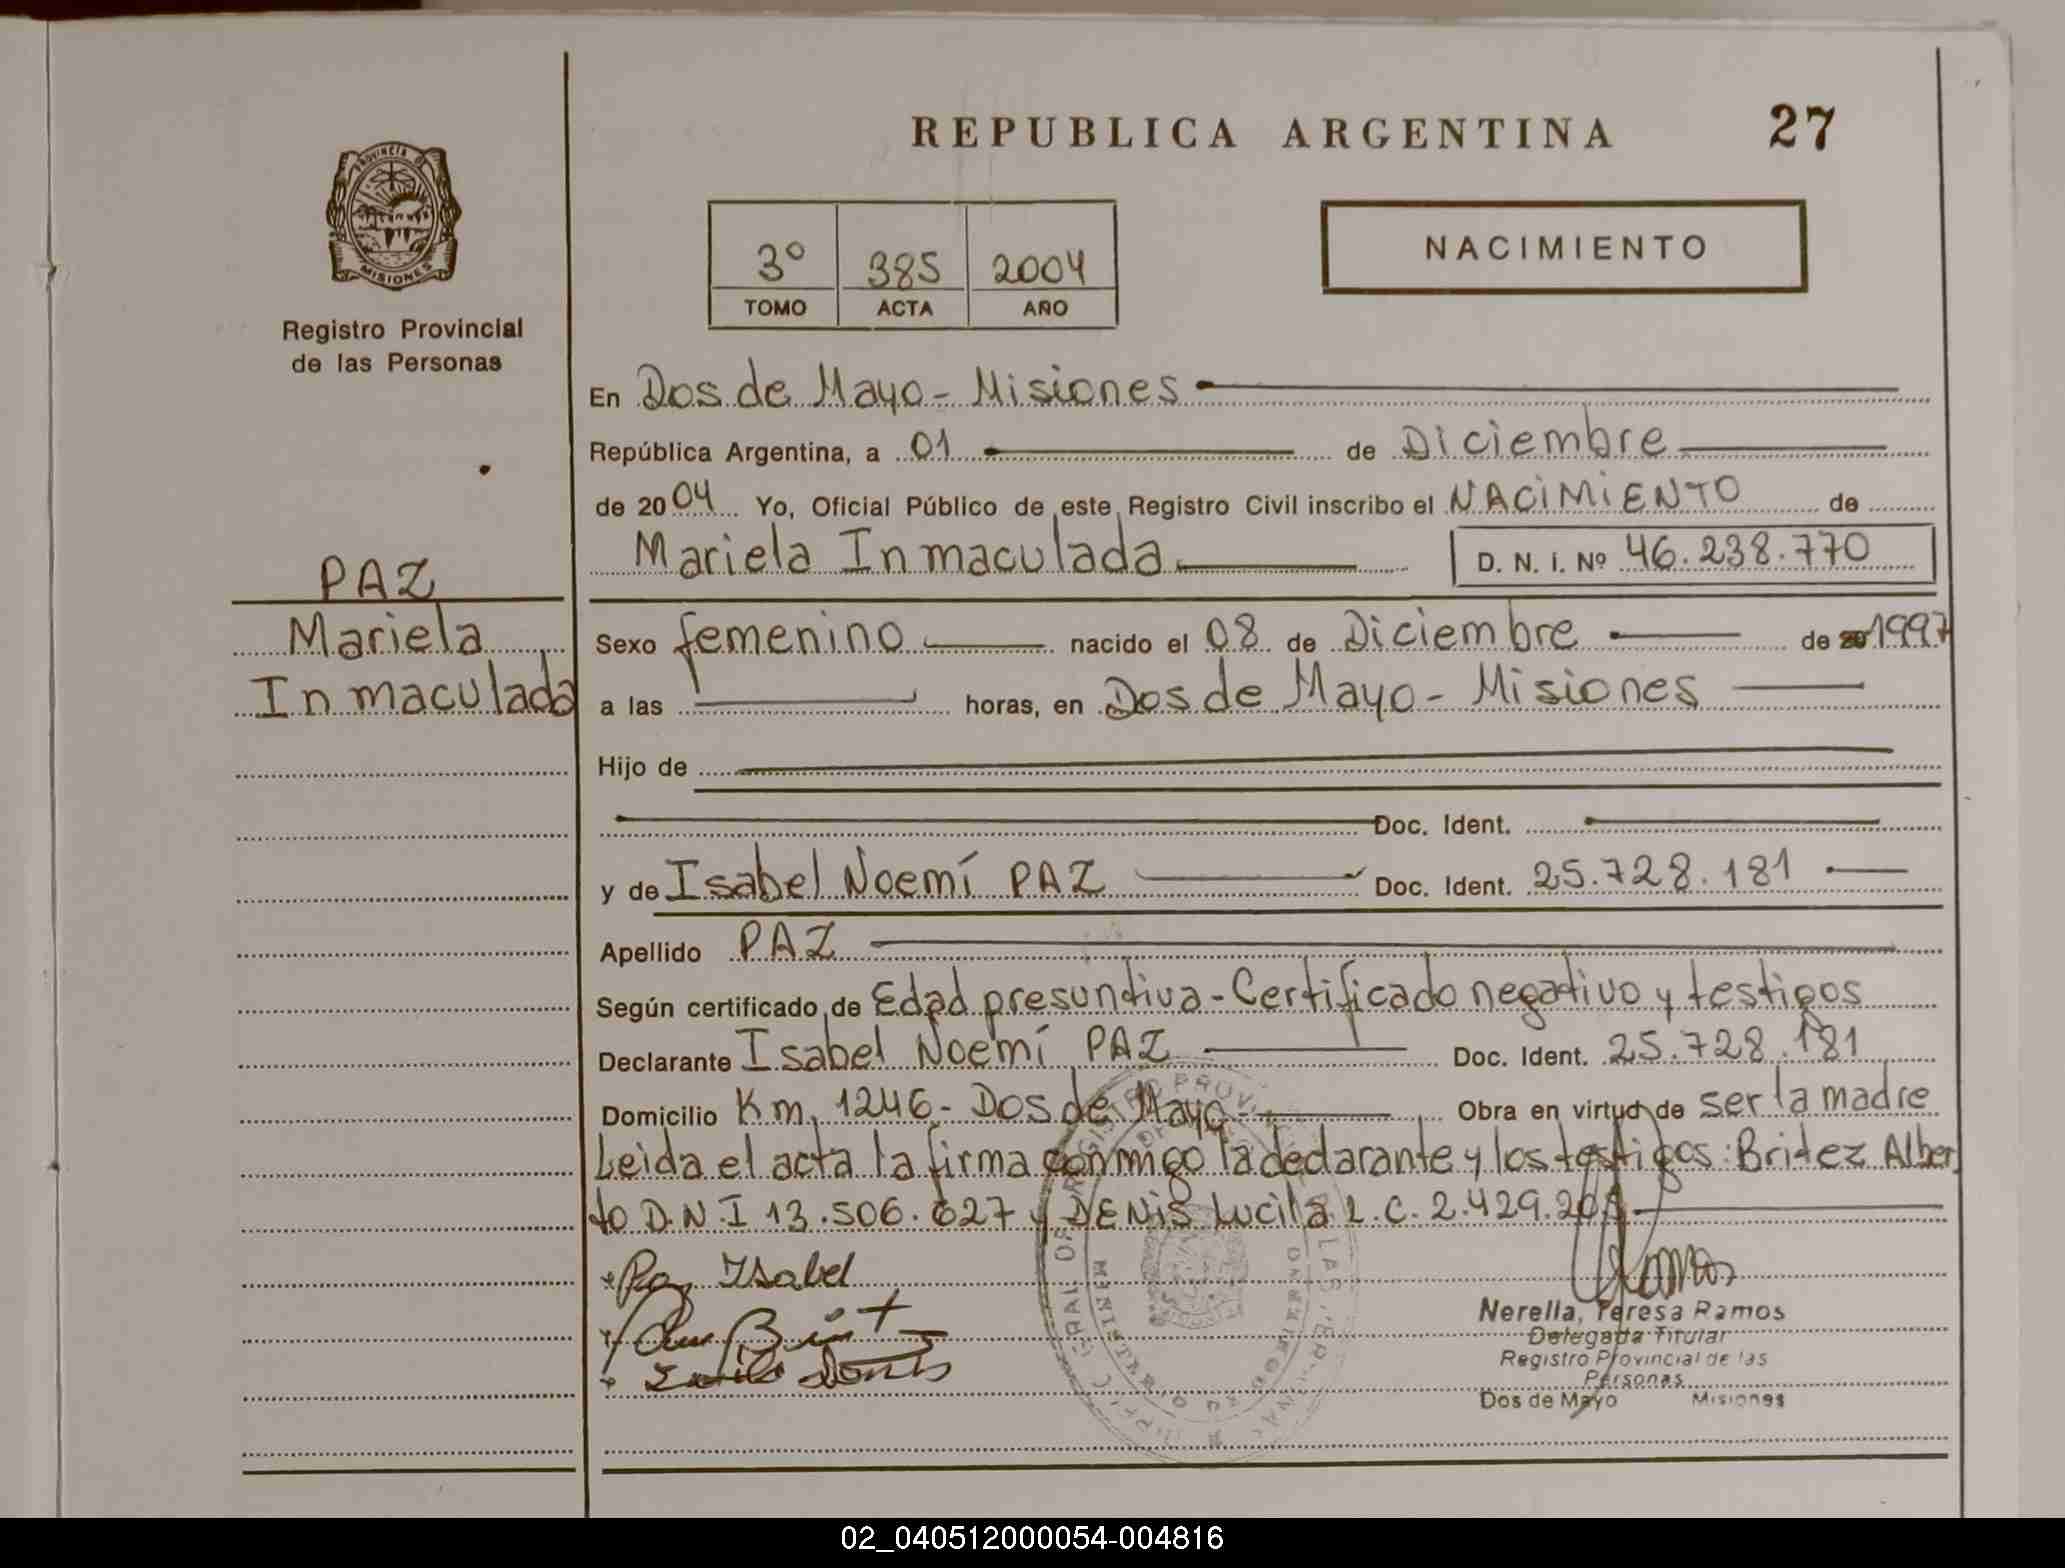 REPUBLICA ARGENTINA 27
PROVINCIA DE
MISIONES
Registro Provincial
de las Personas
3º 385 2004
TOMO ACTA AÑO
NACIMIENTO
En Dos de Mayo - Misiones
República Argentina, a 01 de Diciembre
de 2004 Yo, Oficial Público de este Registro Civil inscribo el NACIMIENTO de
Mariela Inmaculada D. N. I. Nº 46.238.770
PAZ
Mariela
Inmaculada
Sexo femenino nacido el 08 de Diciembre de 1997
a las horas, en Dos de Mayo - Misiones
Hijo de
Doc. Ident.
y de Isabel Noemí PAZ Doc. Ident. 25.728.181
Apellido PAZ
Según certificado de Edad presuntiva - Certificado negativo y testigos
Declarante Isabel Noemí PAZ Doc. Ident. 25.728.181
Domicilio Km. 1246 - Dos de Mayo - Obra en virtud de ser la madre
Leida el acta la firma conmigo la declarante y los testigos: Britez Alber
to D.N.I 13.506.627 y DENIS Lucila L.C. 2.429.205
Paz Isabel
Nerella, Teresa Ramos
Delegada Titular
Registro Provincial de las
Personas
Dos de Mayo Misiones
02_040512000054-004816